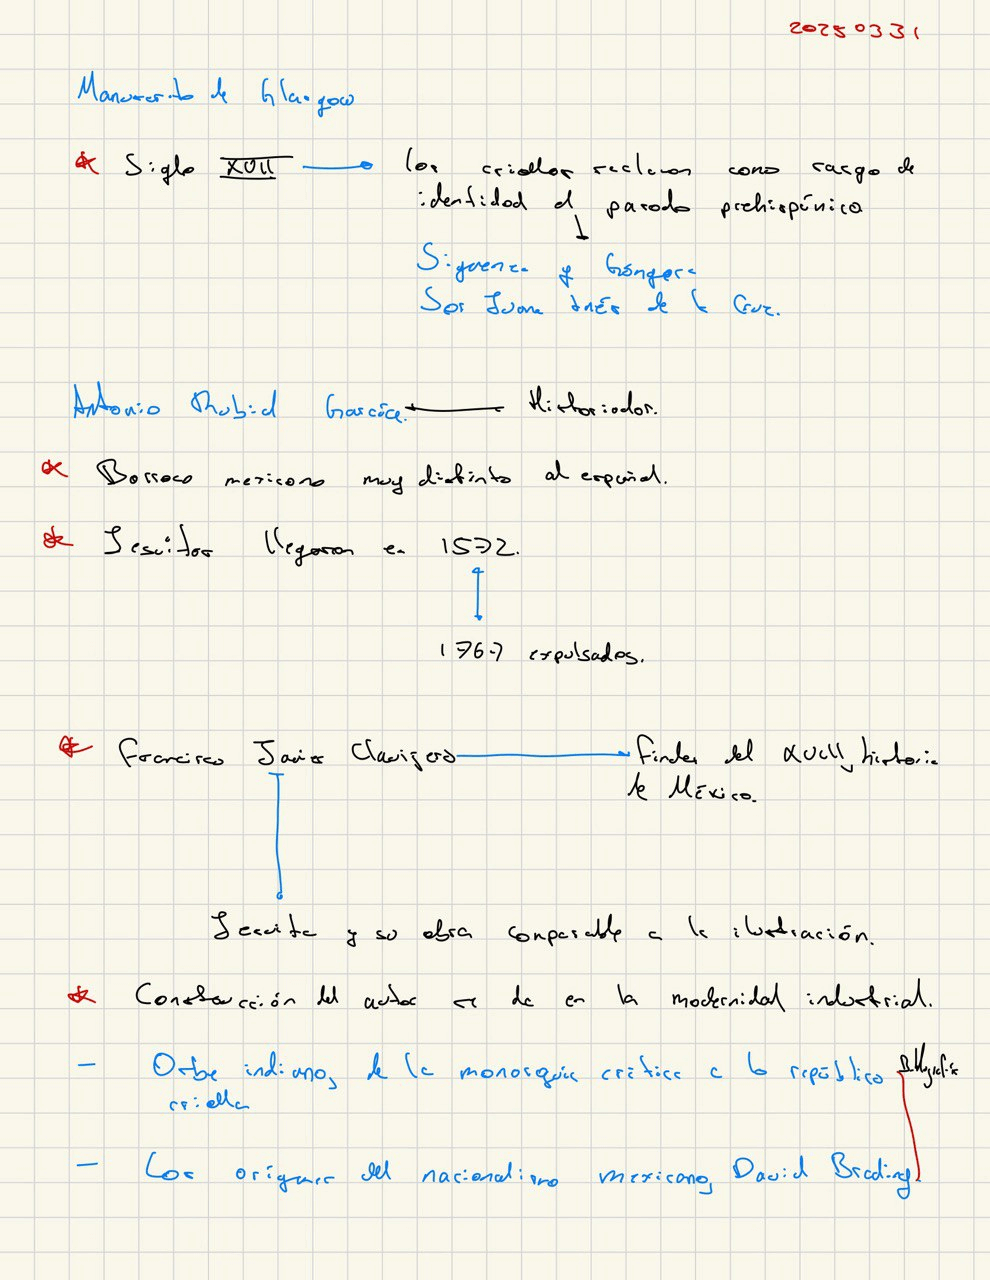 20250331
Manuscrito de Glasgow
* Siglo XVII los criollos reclaman como rasgo de
identidad el pasado prehispánico
Siguenza y Góngora
Sor Juana Inés de la Cruz.
Antonio Rubial García. Historiador.
* Barroco mexicano muy distinto al español.
* Jesuitas llegaron en 1572.
1767 expulsados.
* Francisco Javier Clavijero fines del XVIII, historia
de México.
Jesuita y su obra comparable a la ilustración.
* Construcción del autor se da en la modernidad industrial.
- Orbe indiano, de la monarquía crítica a la república Bibliografía
criolla
- Los orígenes del nacionalismo mexicano, David Brading.